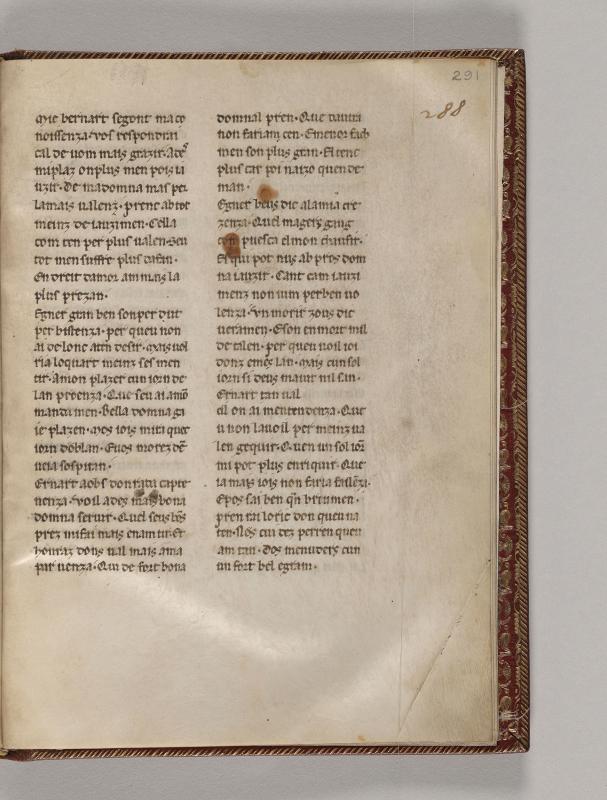 291
288
Mie bernart segont ma co
noissenza · vos respondrai
cal de uom mais grazir · A
mi plaz on plus men pois ia
uzir · De ma domna mas pel
la mais ualenz · prenc ab tot
meinz de iauzimen · Cella
com ten per plus ualen · Seu
tot men suffre plus
En dreit damor am mais la
plus prezan ·
Egner gran ben son per dut
per bistenza · per queu non
ai de lonc aten desir · mais uol
ria lo quart meinz ses men
tir · A mon plazer cun iorn de
lan proenza · Que seu ai
mandamen · Bella domna
ie plazen · mos iois mira quec
iorn doblan · Euos morez
ueia sospiran ·
Ernart a obs don
nenza · uoil ades mais bona
domna seruir · Quel seus
prez mi fai mais enantir · Et
honraz dons ual mais ama
par uenza · Qui de fort bona
domna l pren · Que dautra
non fariam cen · E menor
men son plus gran · El tenc
plus car poi naizo quen de
man ·
Egner beus dic a la mia cre
zenza · Quel magers gaug
con puesca el mon chausir ·
El qui pot nus ab pres dom
na iauzir · Cant cam iauzi
menz non uim per ben uo
lenza · Un morir zous dic
ueramen · E son en mort mil
de talen · per queu uoil ioi
donz emes lan · mais cun sol
iorn si deus maiut mil
Ernart tan ual
cil on ai mentendenza · Que
u non lauoil per meinz ua
len gequir · Quen un sol iorn
mi pot plus enriquir · Que
ia mais iois non faria
Epos sai ben qen breumen ·
pren rai loric don queu na
ten · Nos cui dez per ren queu
am tan · Dos menuders cun
un fort bel egran ·